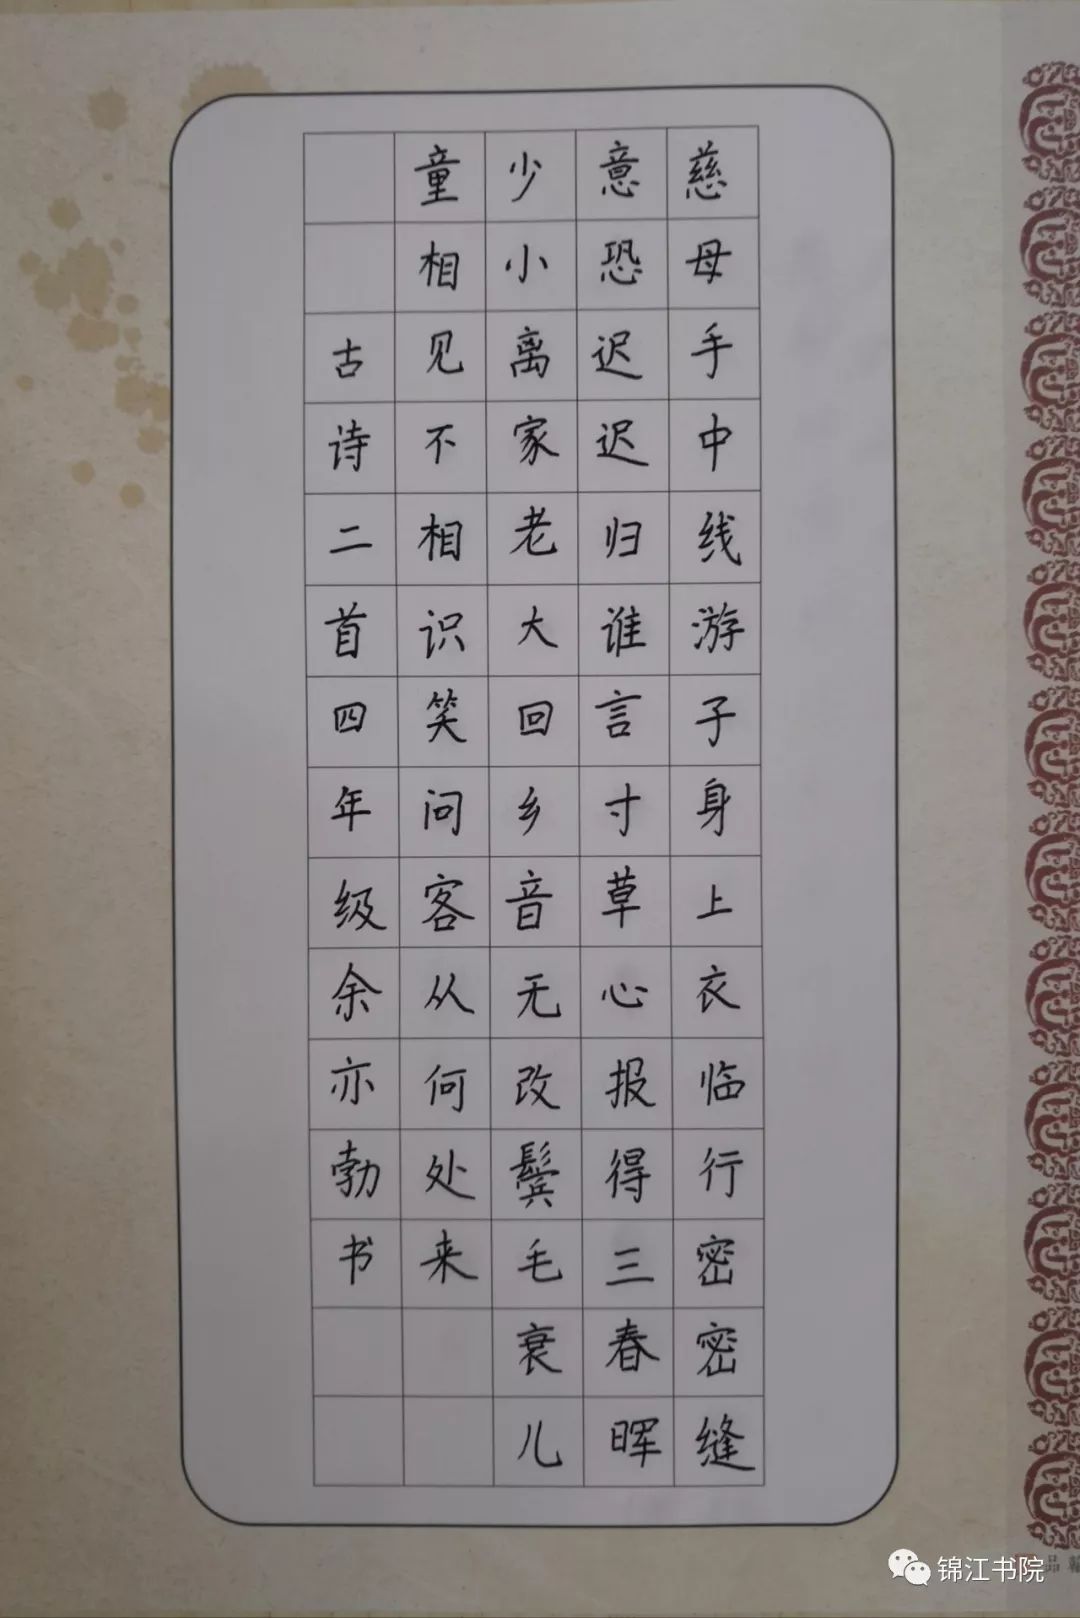 慈母手中线游子身上衣临行密密缝
意恐迟迟归谁言寸草心报得三春晖
少小离家老大回乡音无改鬓毛衰儿
童相见不相识笑问客从何处来
古诗二首四年级余亦勃书
锦江书院